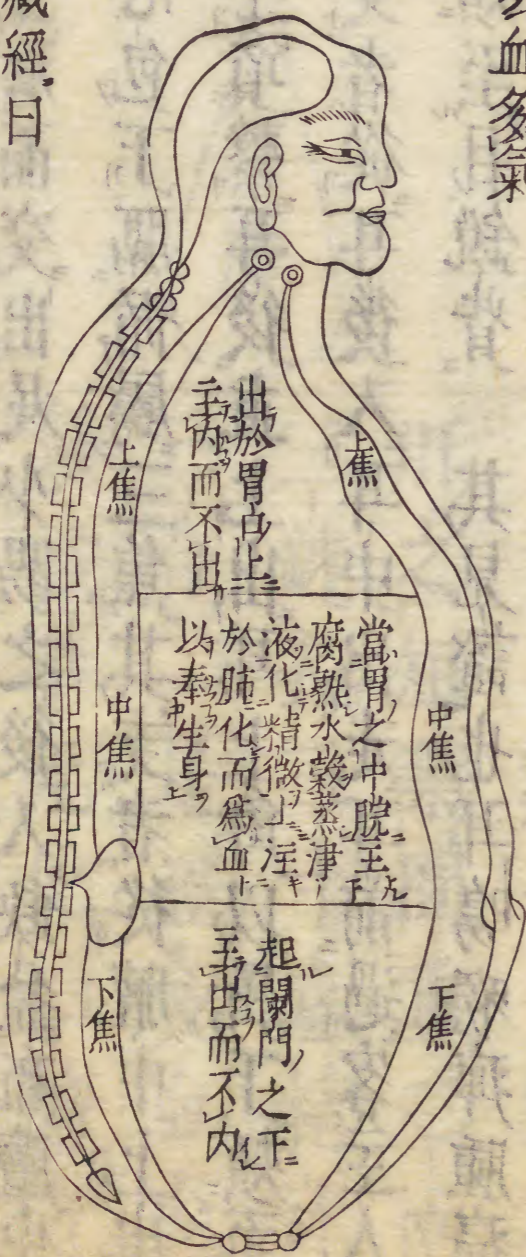 血多氣
上焦
出於胃口上
主内而不出
上焦
中焦
當胃之中脘主
腐熟水穀蒸津
液化精微上注
於肺化而爲血
以奉生身
中焦
下焦
起闌門之下
主出而不内
下焦
藏經曰